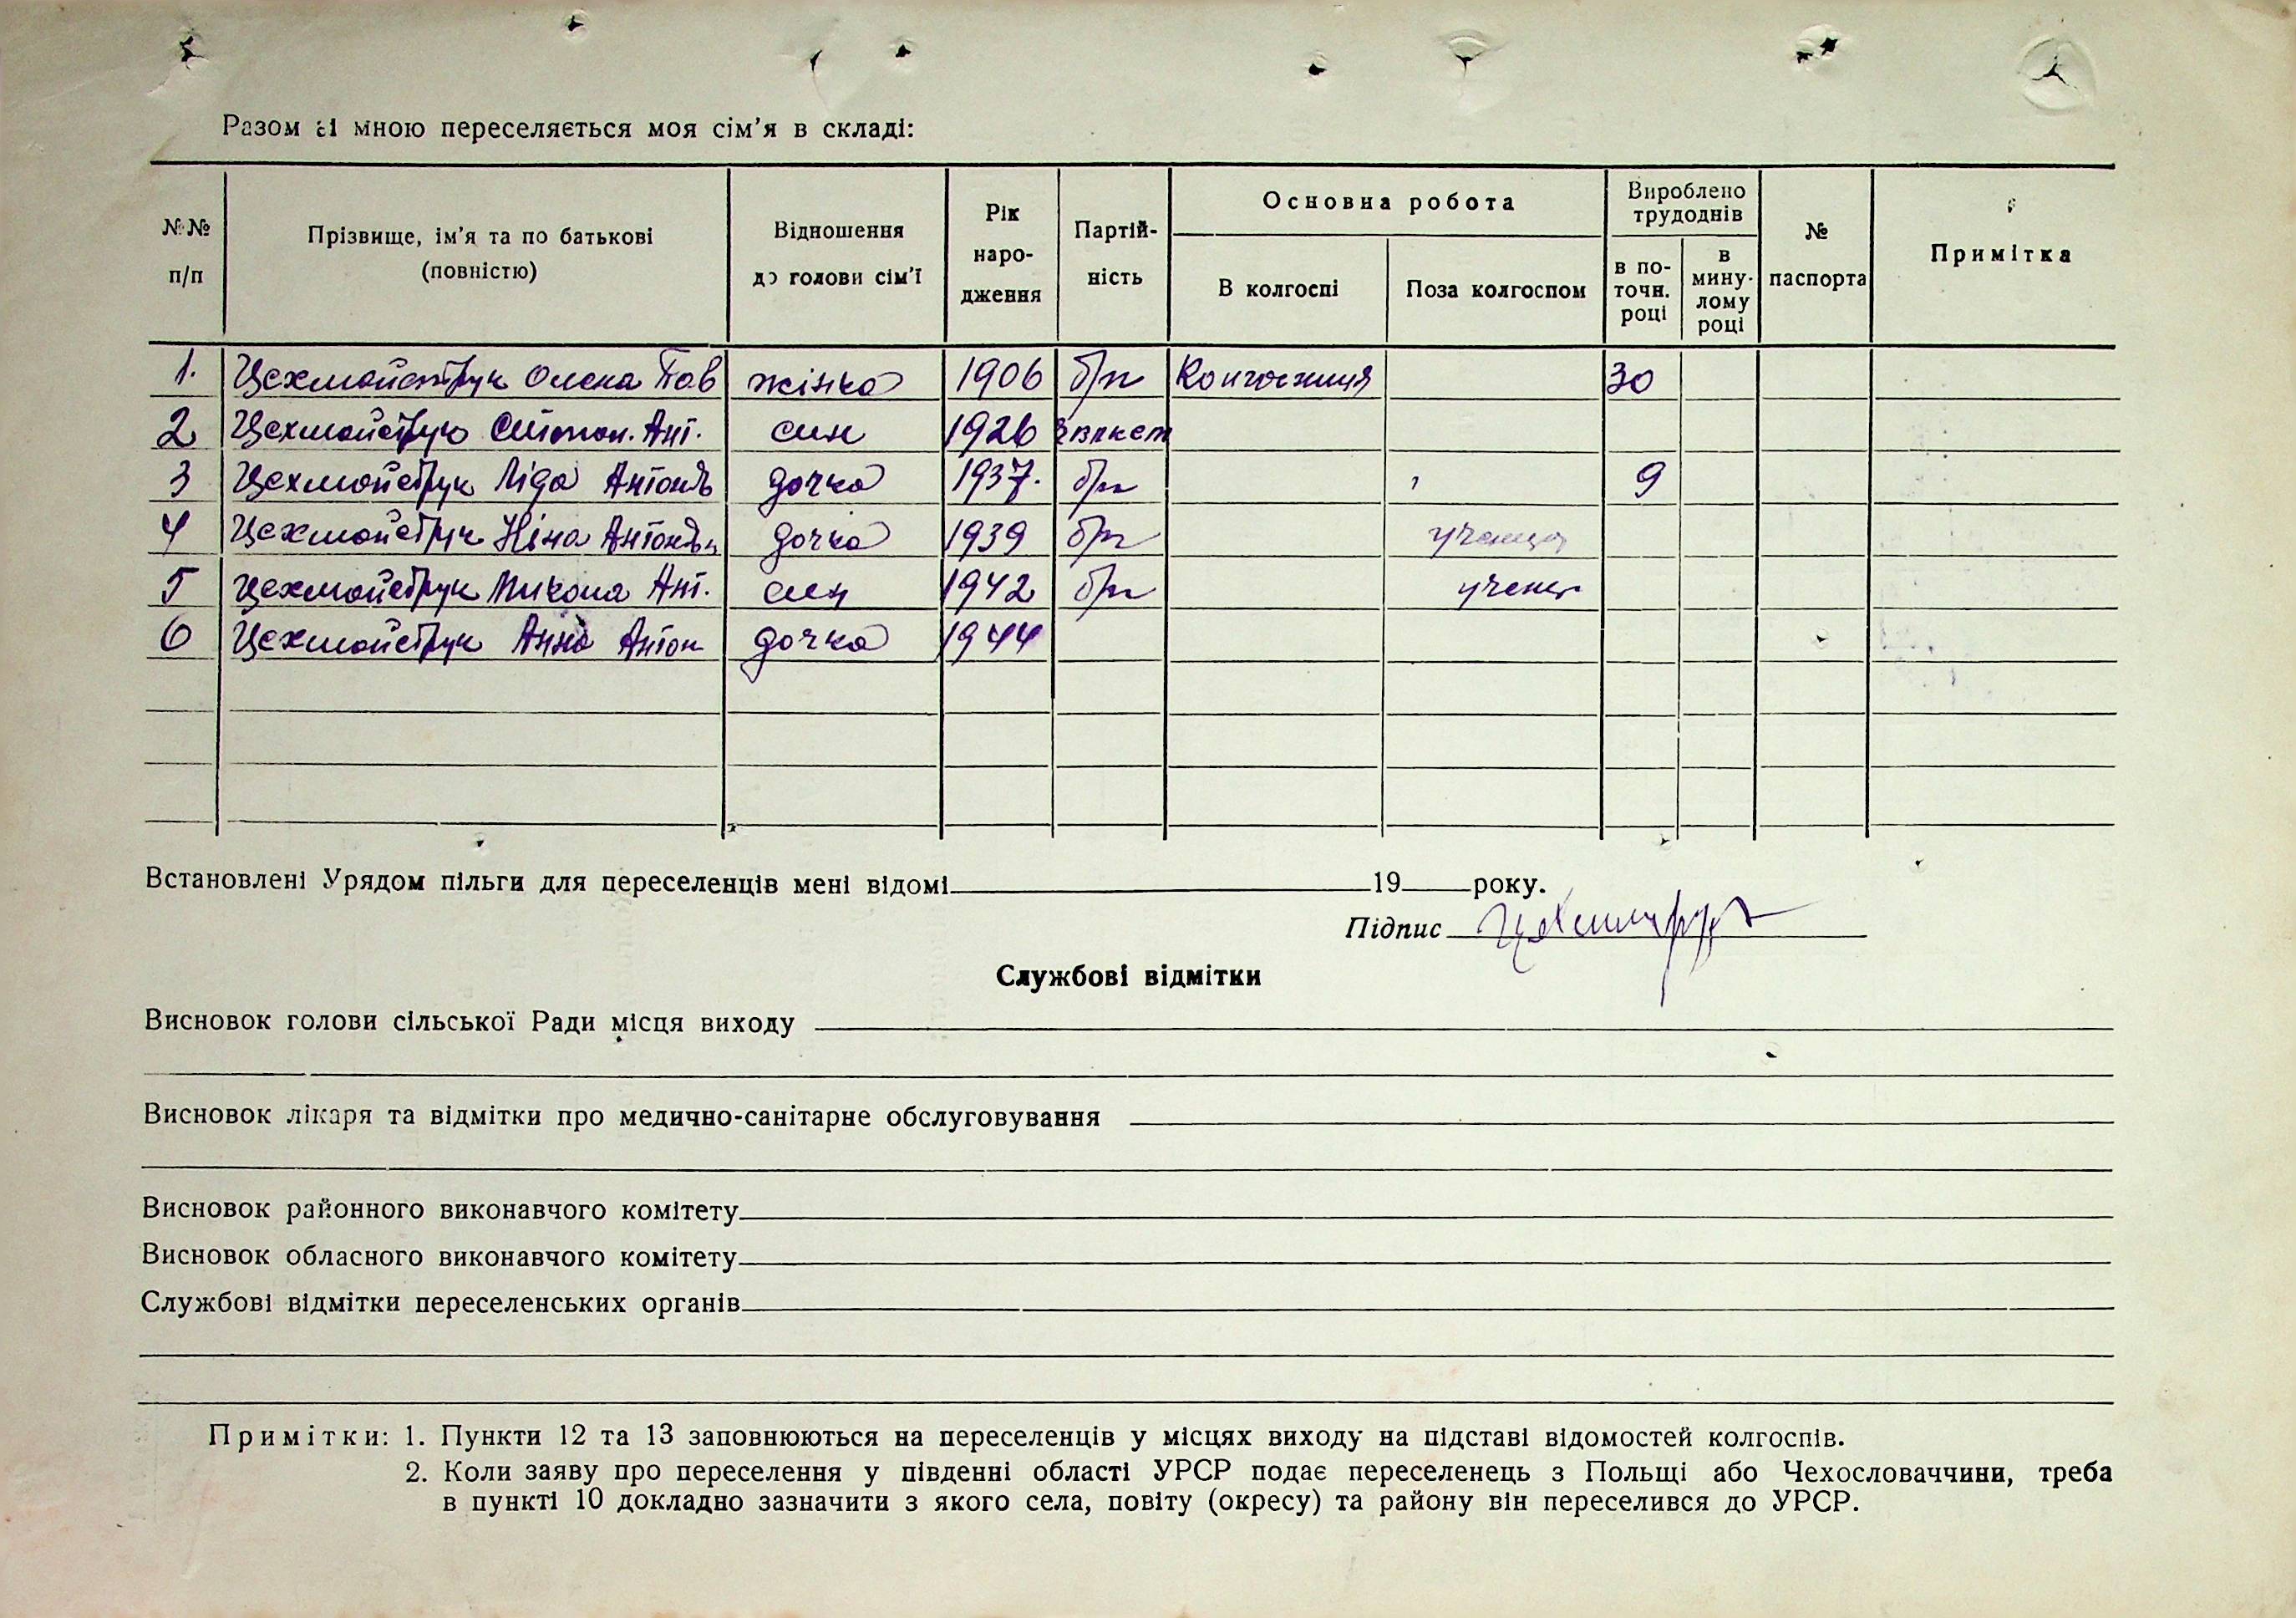 Разом зі мною переселяється моя сім'я в складі:
№№ п/п
Прізвище, ім'я та по батькові (повністю)
Відношення до голови сім'ї
Рік народження
Партійність
Основна робота
В колгоспі
Поза колгоспом
Вироблено трудоднів
в поточн. році
в минулому році
№ паспорта
Примітка
1. Цехмайструк Олена Пав жінка 1906 б/п Колгосниця 30
2 Цехмайструк Степан. Ант. син 1926
3 Цехмайструк Ліда Антонів дочка 1937. б/п 9
4 Цехмайструк Ніна Антонівн дочка 1939 б/п учениця
5 Цехмайструк Микола Ант. син 1942 б/п учень
6 Цехмайструк Анна Антон дочка 1944
Встановлені Урядом пільги для переселенців мені відомі 19 року.
Підпис
Службові відмітки
Висновок голови сільської Ради місця виходу
Висновок лікаря та відмітки про медично-санітарне обслуговування
Висновок районного виконавчого комітету
Висновок обласного виконавчого комітету
Службові відмітки переселенських органів
Примітки: 1. Пункти 12 та 13 заповнюються на переселенців у місцях виходу на підставі відомостей колгоспів.
2. Коли заяву про переселення у південні області УРСР подає переселенець з Польщі або Чехословаччини, треба
в пункті 10 докладно зазначити з якого села, повіту (окресу) та району він переселився до УРСР.